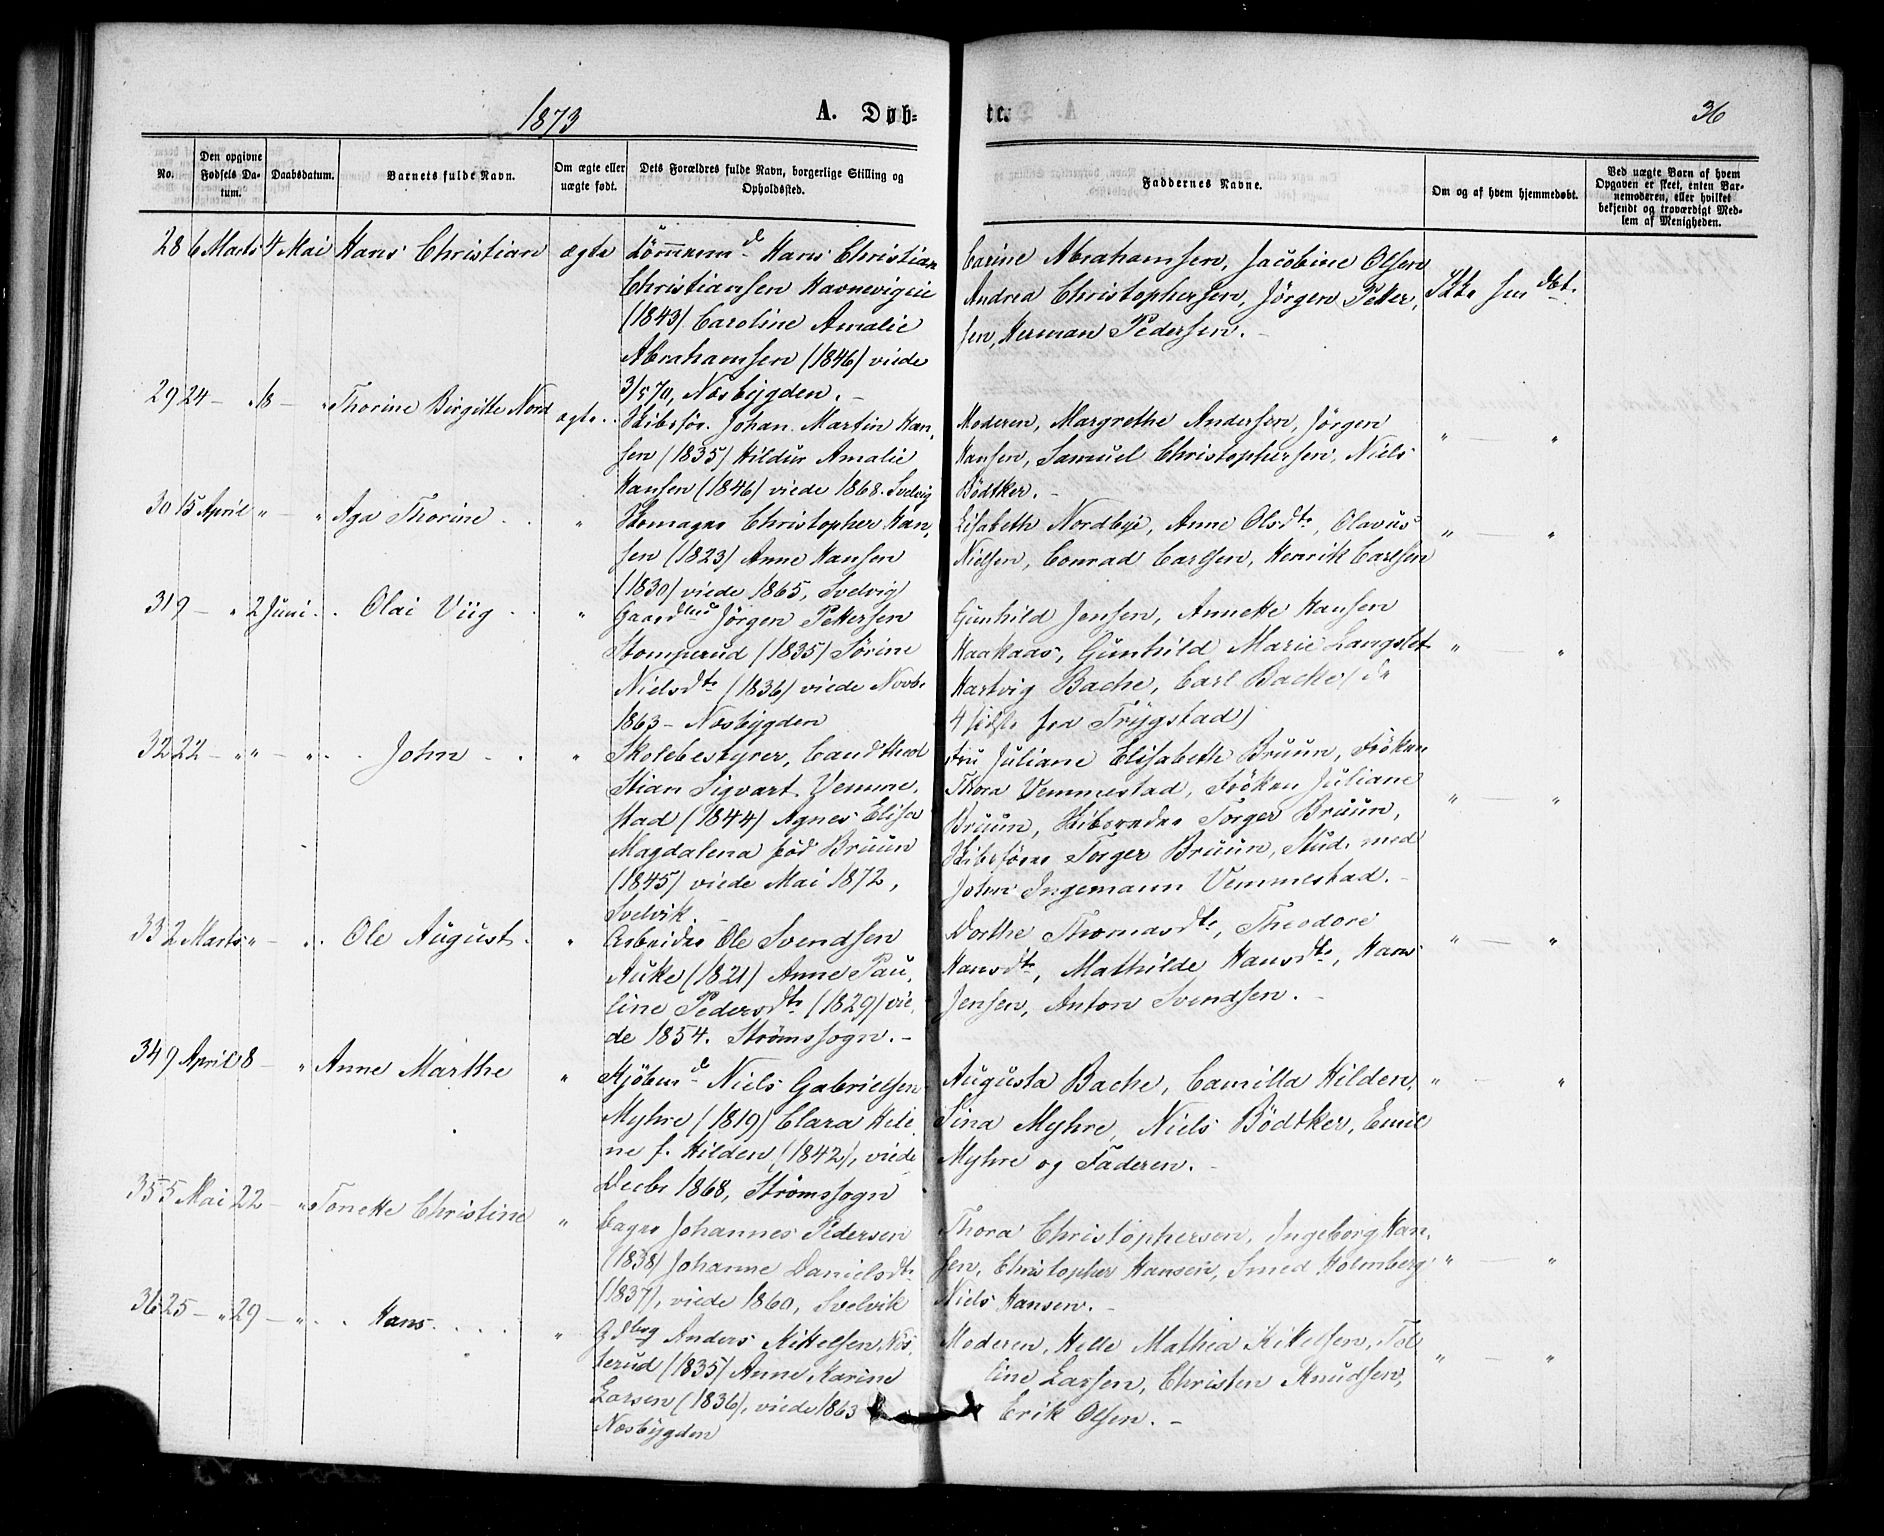 1873
A. Døb-
te.
36
No.
Den opgivne Fødsels Da-tum.
Daabsdatum.
Barnets fulde Navn.
Om ægte eller uægte født.
Dets Forældres fulde Navn, borgerlige Stilling og Opholdssted.
Faddernes Navne.
Om og af hvem hjemmedøbt.
Ved uægte Barn af hvem Opgaven er skeet, enten Bar-nemoderen, eller hvilket bekjendt og troværdigt Med-lem af Menigheden.
28 6 Marts 4 Mai Hans Christian ægte
Tømmermd Hans Christian
Christiansen Havnevigeie
(1843) Caroline Amalie
Abrahamsen (1846) viede
3/5 70, Nesbygden. -
Carine Abrahamsen, Jacobine Olsen
Andrea Christophersen, Jörgen Petter,
sen, Herman Pedersen. -
29 24 - " 18 - " Thorine Birgitte Nord ægte
Skibsfør. Johan Martin Han,
sen (1835) Hildur Amalie
Hansen (1846) viede 1868. Svelvig
Moderen, Margrethe Andersen, Jörgen
Hansen, Samuel Christophersen, Niels
Bödtker. -
" - "
30 15 April " - " Aga Thorine "
Skomager Christopher Han,
sen (1823) Anne Hansen
(1830) viede 1865, Svelvig
Elisabeth Nordbye, Anne Olsdtr, Olavus
Nielsen, Conrad Carlsen, Henrik Carlsen
" - "
31 9 - " 2 Juni Olai Viig "
Jörgen Pettersen
Stomperud (1835) Sörine
Nielsdtr (1836) viede Novbr
1863 - Nesbygden
Gunhild Jensen, Annette Hansen
Haakaas, Gunhild Marie Langslet
Hartvig Bache, Carl Bache (de
4 sidste fra Trygstad)
" - "
32 22 - " " - " John "
Skolebestyrer, Cand theol
Stian Sigvart Vemme,
stad (1844) Agnes Elisa
Magdalena född Bruun
(1845) viede Mai 1872,
Svelvik
Fru Juliane Elisabeth Bruun, Fröken
Thora Vemmestad, Fröken Juliane
Bruun, Torger Bruun,
Skibsförer Torger Bruun, Stud. med
John Ingemann Vemmestad. -
" - "
33 2 Marts " - " Ole August "
Arbeider Ole Svendsen
Auke (1821) Anne Pau,
line Pedersdtr (1829) vie,
de 1854. Strømssogn. -
Dorthe Thomasdtr, Theodore
Hansdtr, Mathilde Hansdtr, Hans
Jensen, Anton Svendsen. -
" - "
34 9 April 8 - " Anne Marthe "
Kjöbmd Niels Gabrielsen
Myhre (1819) Clara Hele
ne f. Hilden (1842), viede
Decbr 1868, Strømssogn
Augusta Bache, Camilla Hilden,
Sina Myhre, Niels Bödtker, Emil
Myhre og Faderen. -
" - "
35 5 Mai 22 - " Tonette Christine "
Bager Johannes Pedersen
(1838) Johanne Danielsdtr
(1837), viede 1860, Svelvik
Thora Christophersen, Ingeborg Han,
sen, Christopher Hansen, Smed Holmberg
Niels Hansen. -
" - "
36 25 - " 29 - " Hans "
Gdbrg Anders Mikkelsen, Nös,
terud (1835) Anne Karine
Larsen (1836), viede 1863
Nesbygden
Moderen, Helle Mathea Mikkelsen, Tol
line Larsen, Christen Knudsen,
Erik Olsen. -
" - "